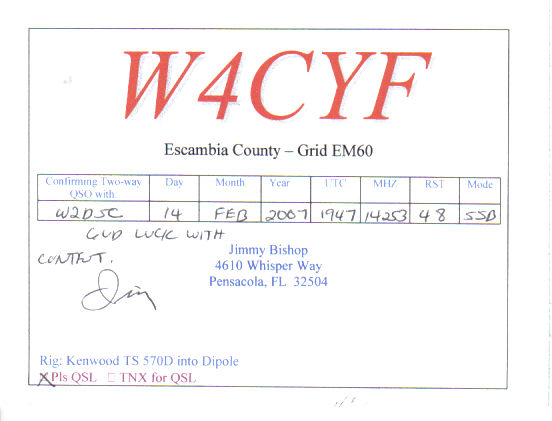 W4CYF
Escambia County – Grid EM60
Confirming Two-way QSO with Day Month Year UTC MHZ RST Mode
W2DSC 14 FEB 2007 1947 14253 48 SSB
GUD LUCK WITH
CONTEST.
Jim
Jimmy Bishop
4610 Whisper Way
Pensacola, FL 32504
Rig: Kenwood TS 570D into Dipole
☒ Pls QSL ☐ TNX for QSL